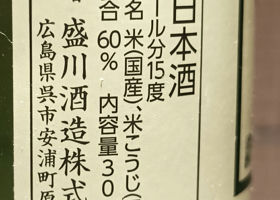 日本酒
ール分15度
名 米(国産)、米こうじ(
合 60% 内容量30
盛川酒造株式
広島県呉市安浦町原